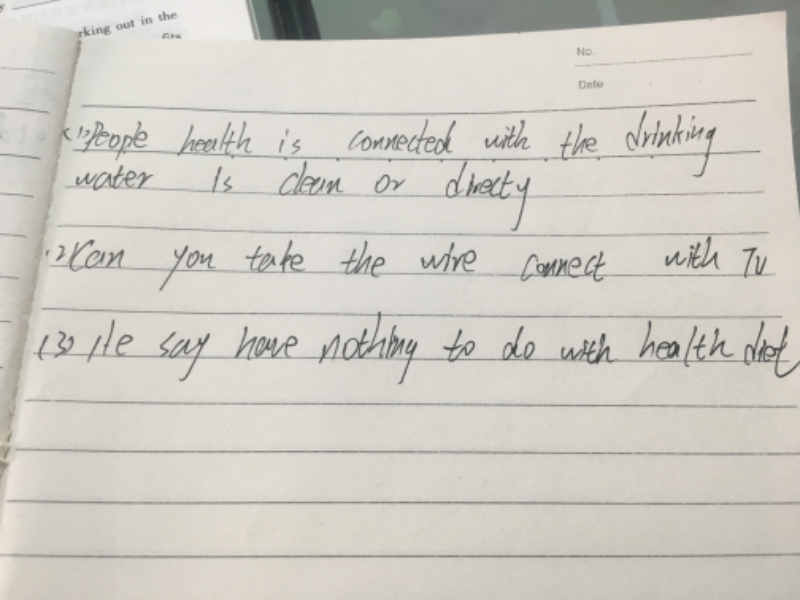 rking out in the
No.
Date
(1) People health is connected with the drinking
water Is clean or directy
(2) Can you take the wire connect with TV
(3) He say have nothing to do with health diet